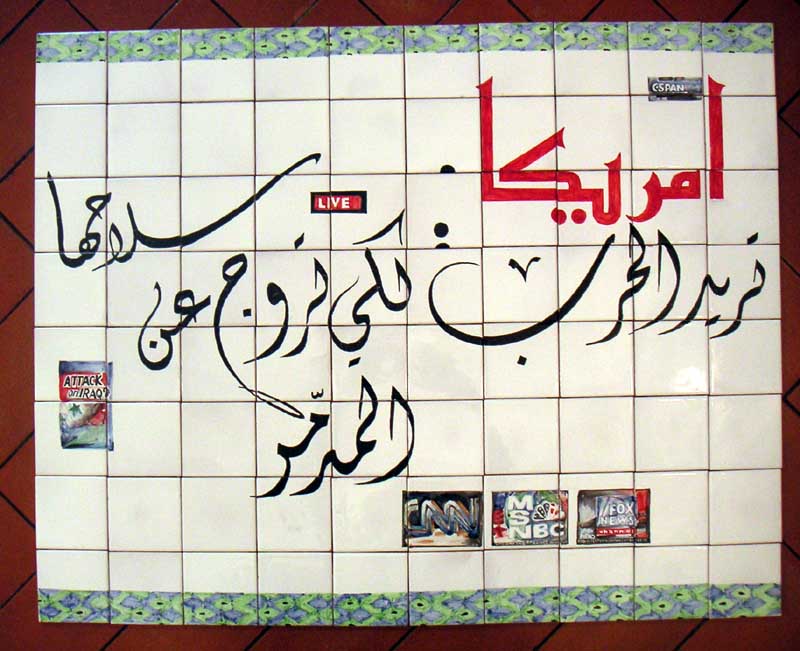 CSPAN
امريكا
LIVE
تريد الحرب لكي تروج عن سلاحها
المدمّر
ATTACK
on IRAQ?
CNN
MSNBC
FOX
NEWS
channel